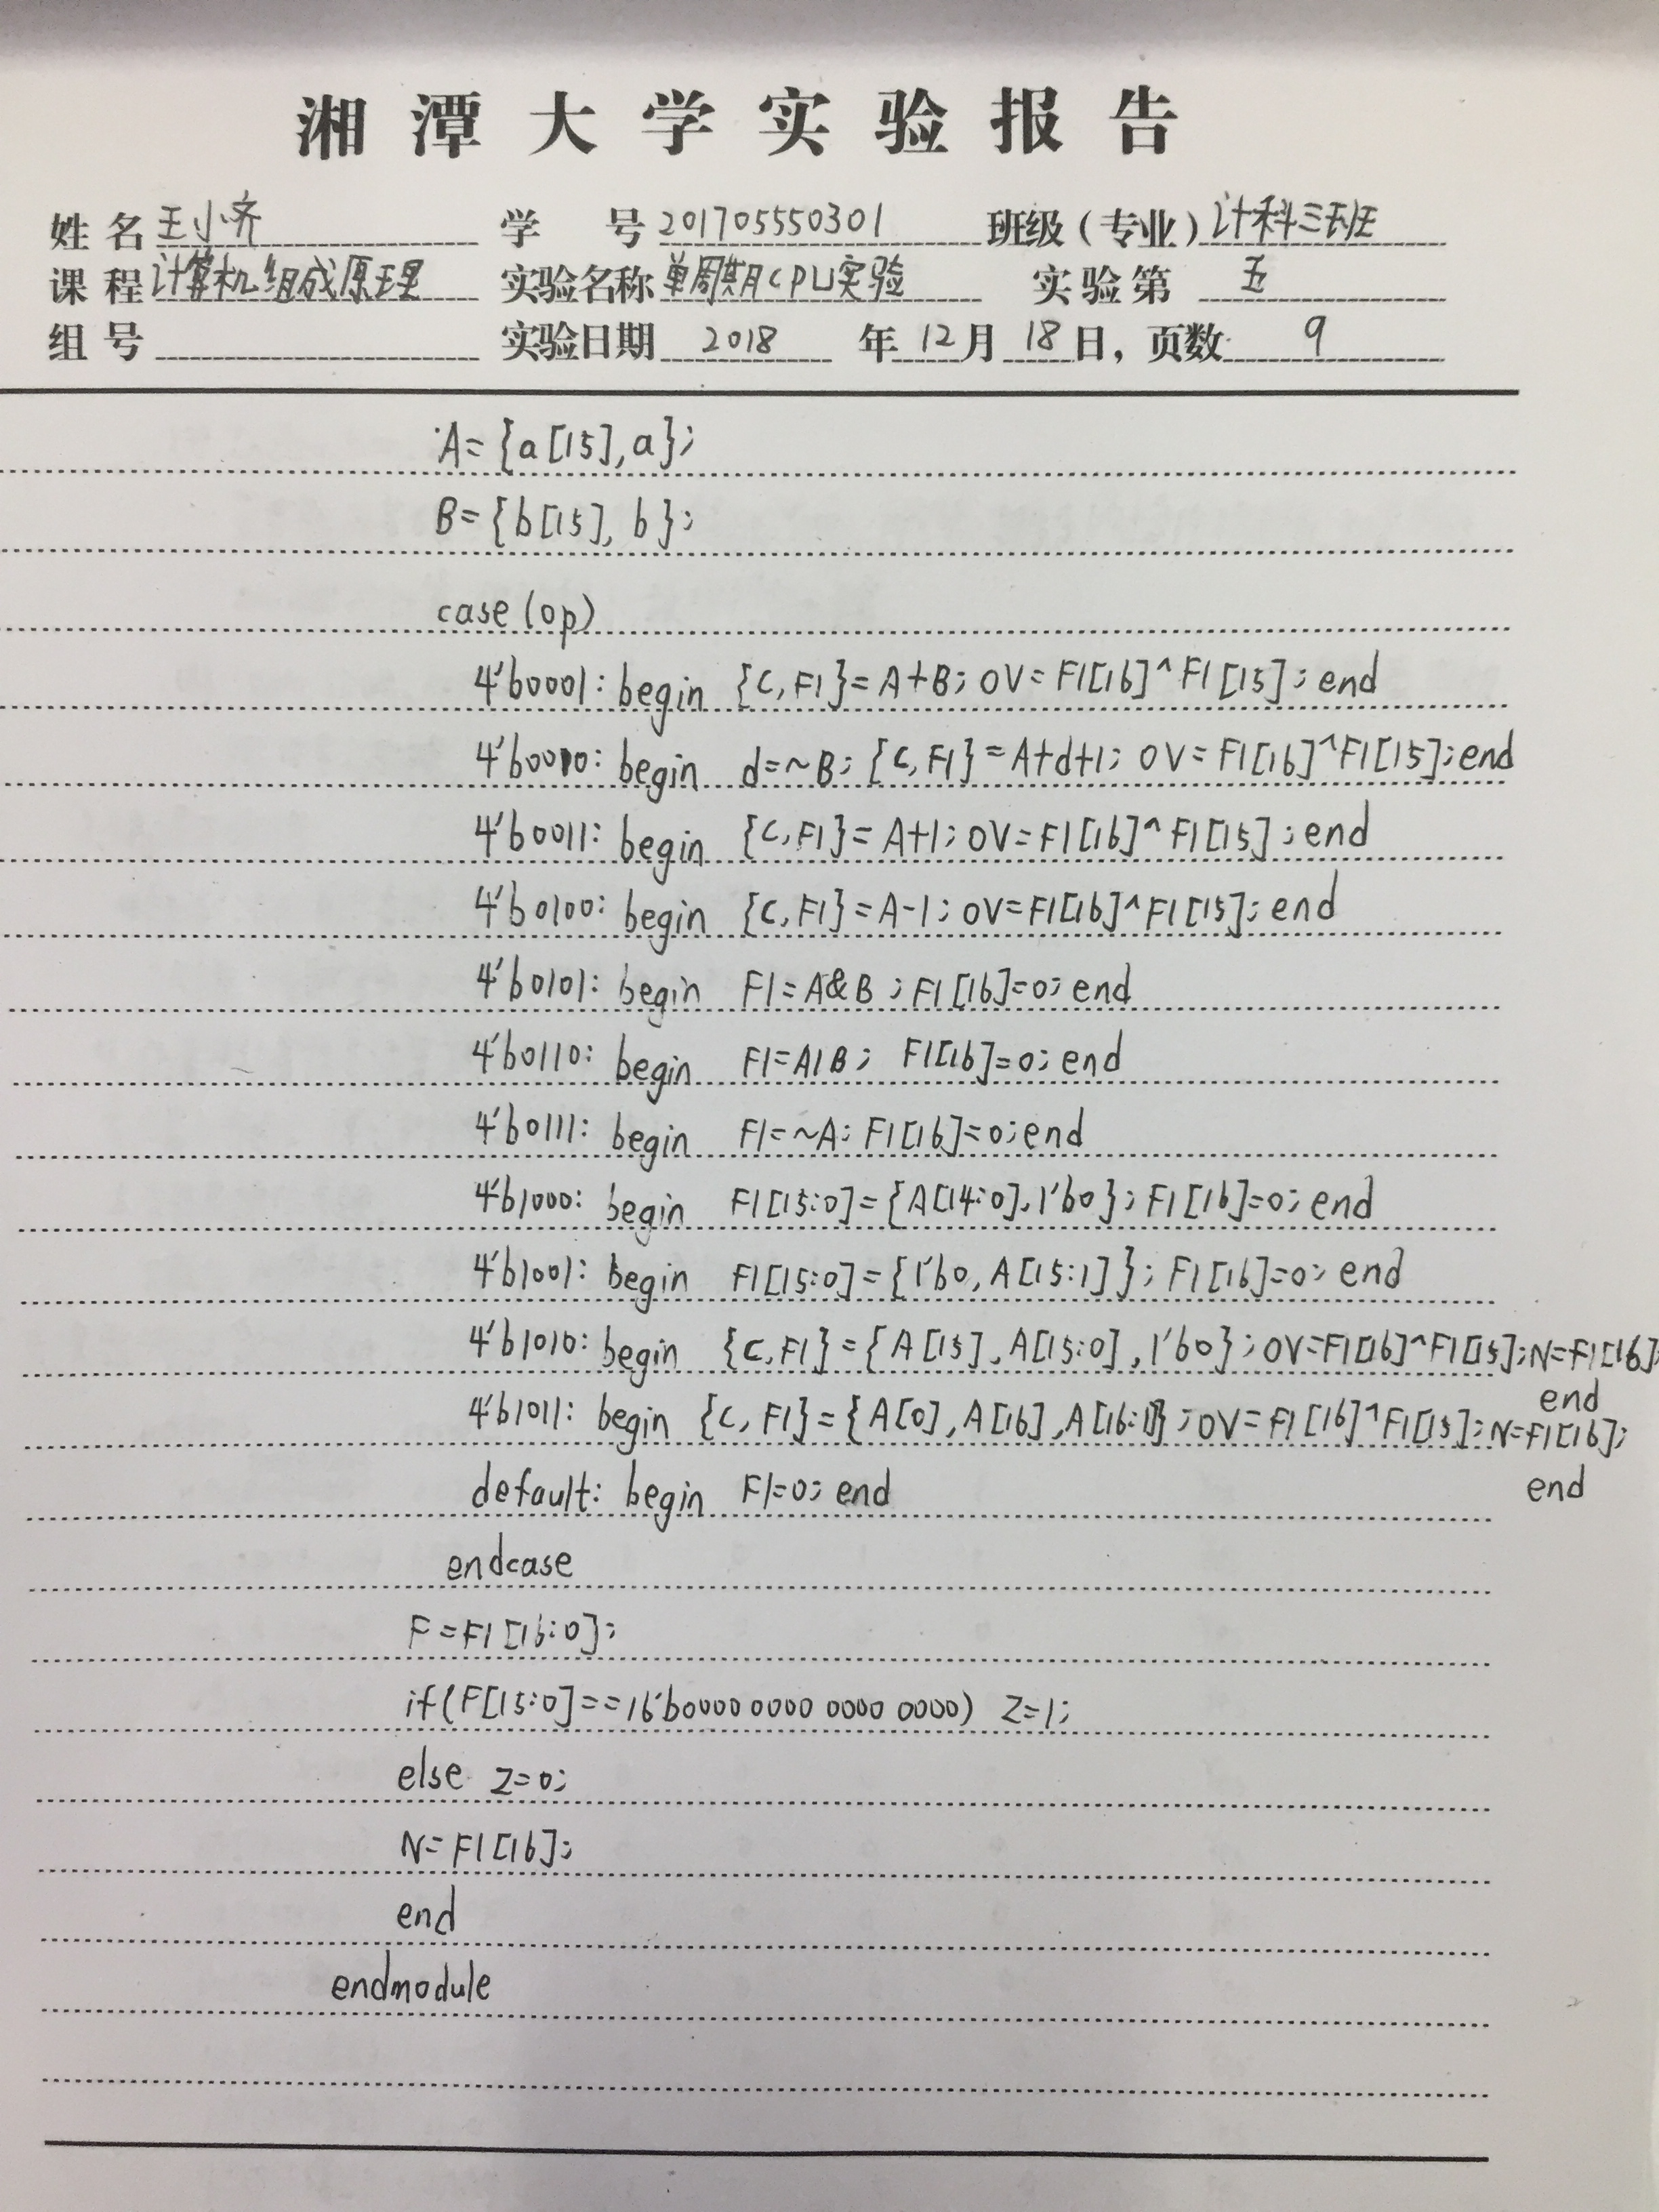 湘潭大学实验报告
姓名 王小齐 学号 201705550301 班级(专业) 计科三班
课程 计算机组成原理 实验名称 单周期CPU实验 实验第 五
组号 实验日期 2018 年 12 月 18 日, 页数 9
A={a[15],a};
B={b[15],b};
case(op)
4'b0001: begin {C,F1}=A+B; OV=F1[16]^F1[15]; end
4'b0010: begin d=~B; {C,F1}=A+d+1; OV=F1[16]^F1[15]; end
4'b0011: begin {C,F1}=A+1; OV=F1[16]^F1[15]; end
4'b0100: begin {C,F1}=A-1; OV=F1[16]^F1[15]; end
4'b0101: begin F1=A&B; F1[16]=0; end
4'b0110: begin F1=A|B; F1[16]=0; end
4'b0111: begin F1=~A; F1[16]=0; end
4'b1000: begin F1[15:0]={A[14:0],1'b0}; F1[16]=0; end
4'b1001: begin F1[15:0]={1'b0,A[15:1]}; F1[16]=0; end
4'b1010: begin {C,F1}={A[15],A[15:0],1'b0}; OV=F1[16]^F1[15]; N=F1[16];
end
4'b1011: begin {C,F1}={A[0],A[16],A[16:1]}; OV=F1[16]^F1[15]; N=F1[16];
end
default: begin F1=0; end
endcase
F=F1[16:0];
if(F[15:0]==16'b0000 0000 0000 0000) Z=1;
else Z=0;
N=F1[16];
end
endmodule